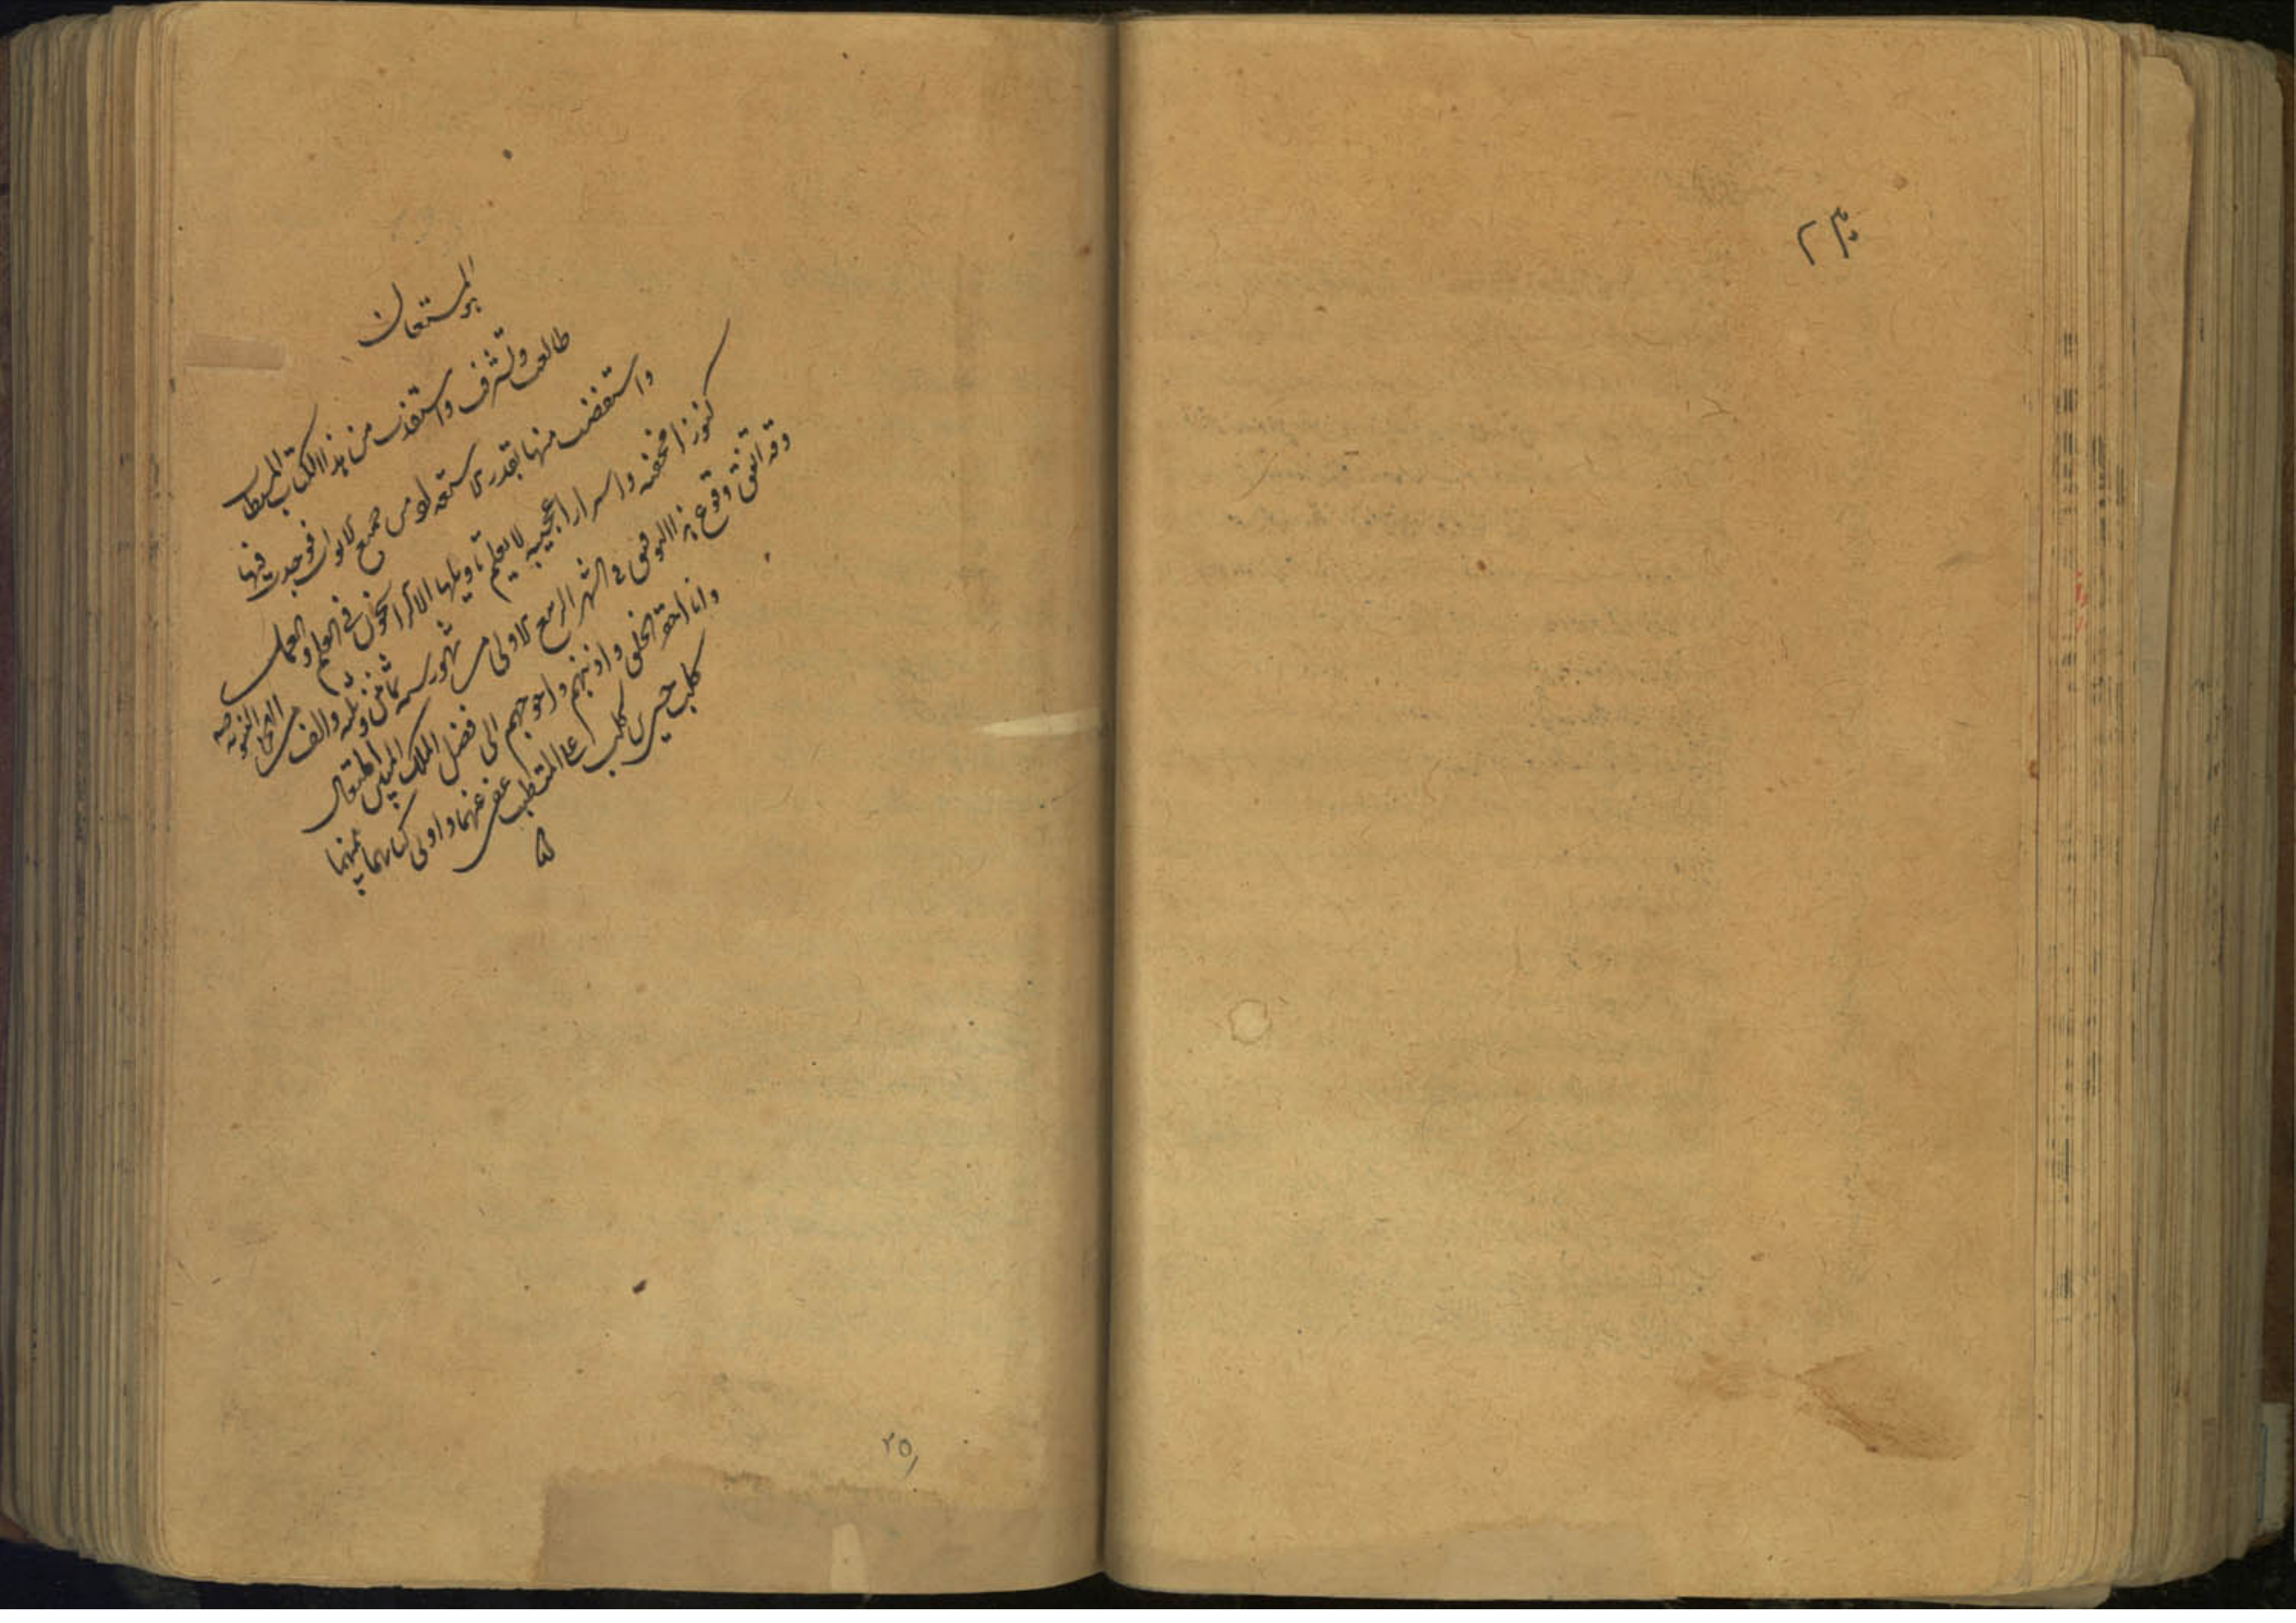 هو المستعان
طالعت وتشرفت واستفدت من هذا الكتاب المستطاب
واستفضت منها بقدر الاستعداد من جميع الابواب فوجدت فيها
كنوزا مخفيه واسرارا عجيبه لا يعلم تاويلها الا الراسخون في العلم والعمل
وقد اتفق وقوع هذا التوفيق في الشهر الربيع الاولى من شهور سنه ثمان و والف من الهجرة النبويه
وانا احقر الخلق واذنبهم واحوجهم الى فضل الملك المتعال
كلب حسين كلب على المتطبب عفى عنهما واوتى كتابهما بيمينهما
۲۵۱